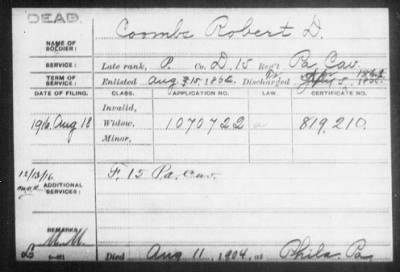 DEAD.
Coombe Robert D.
NAME OF SOLDIER:
SERVICE: Late rank, P. Co. D. 15 Reg't Pa Cav.
TERM OF SERVICE: Enlisted Aug 1862. Discharged
DATE OF FILING. CLASS. APPLICATION NO. LAW. CERTIFICATE NO.
Invalid,
1916 Aug 18 Widow, 1070722 819.210.
Minor,
12/13/16
ADDITIONAL SERVICES: F. 15 Pa. Cav.
REMARKS:
Died Aug 11, 1904, at Phila. Pa